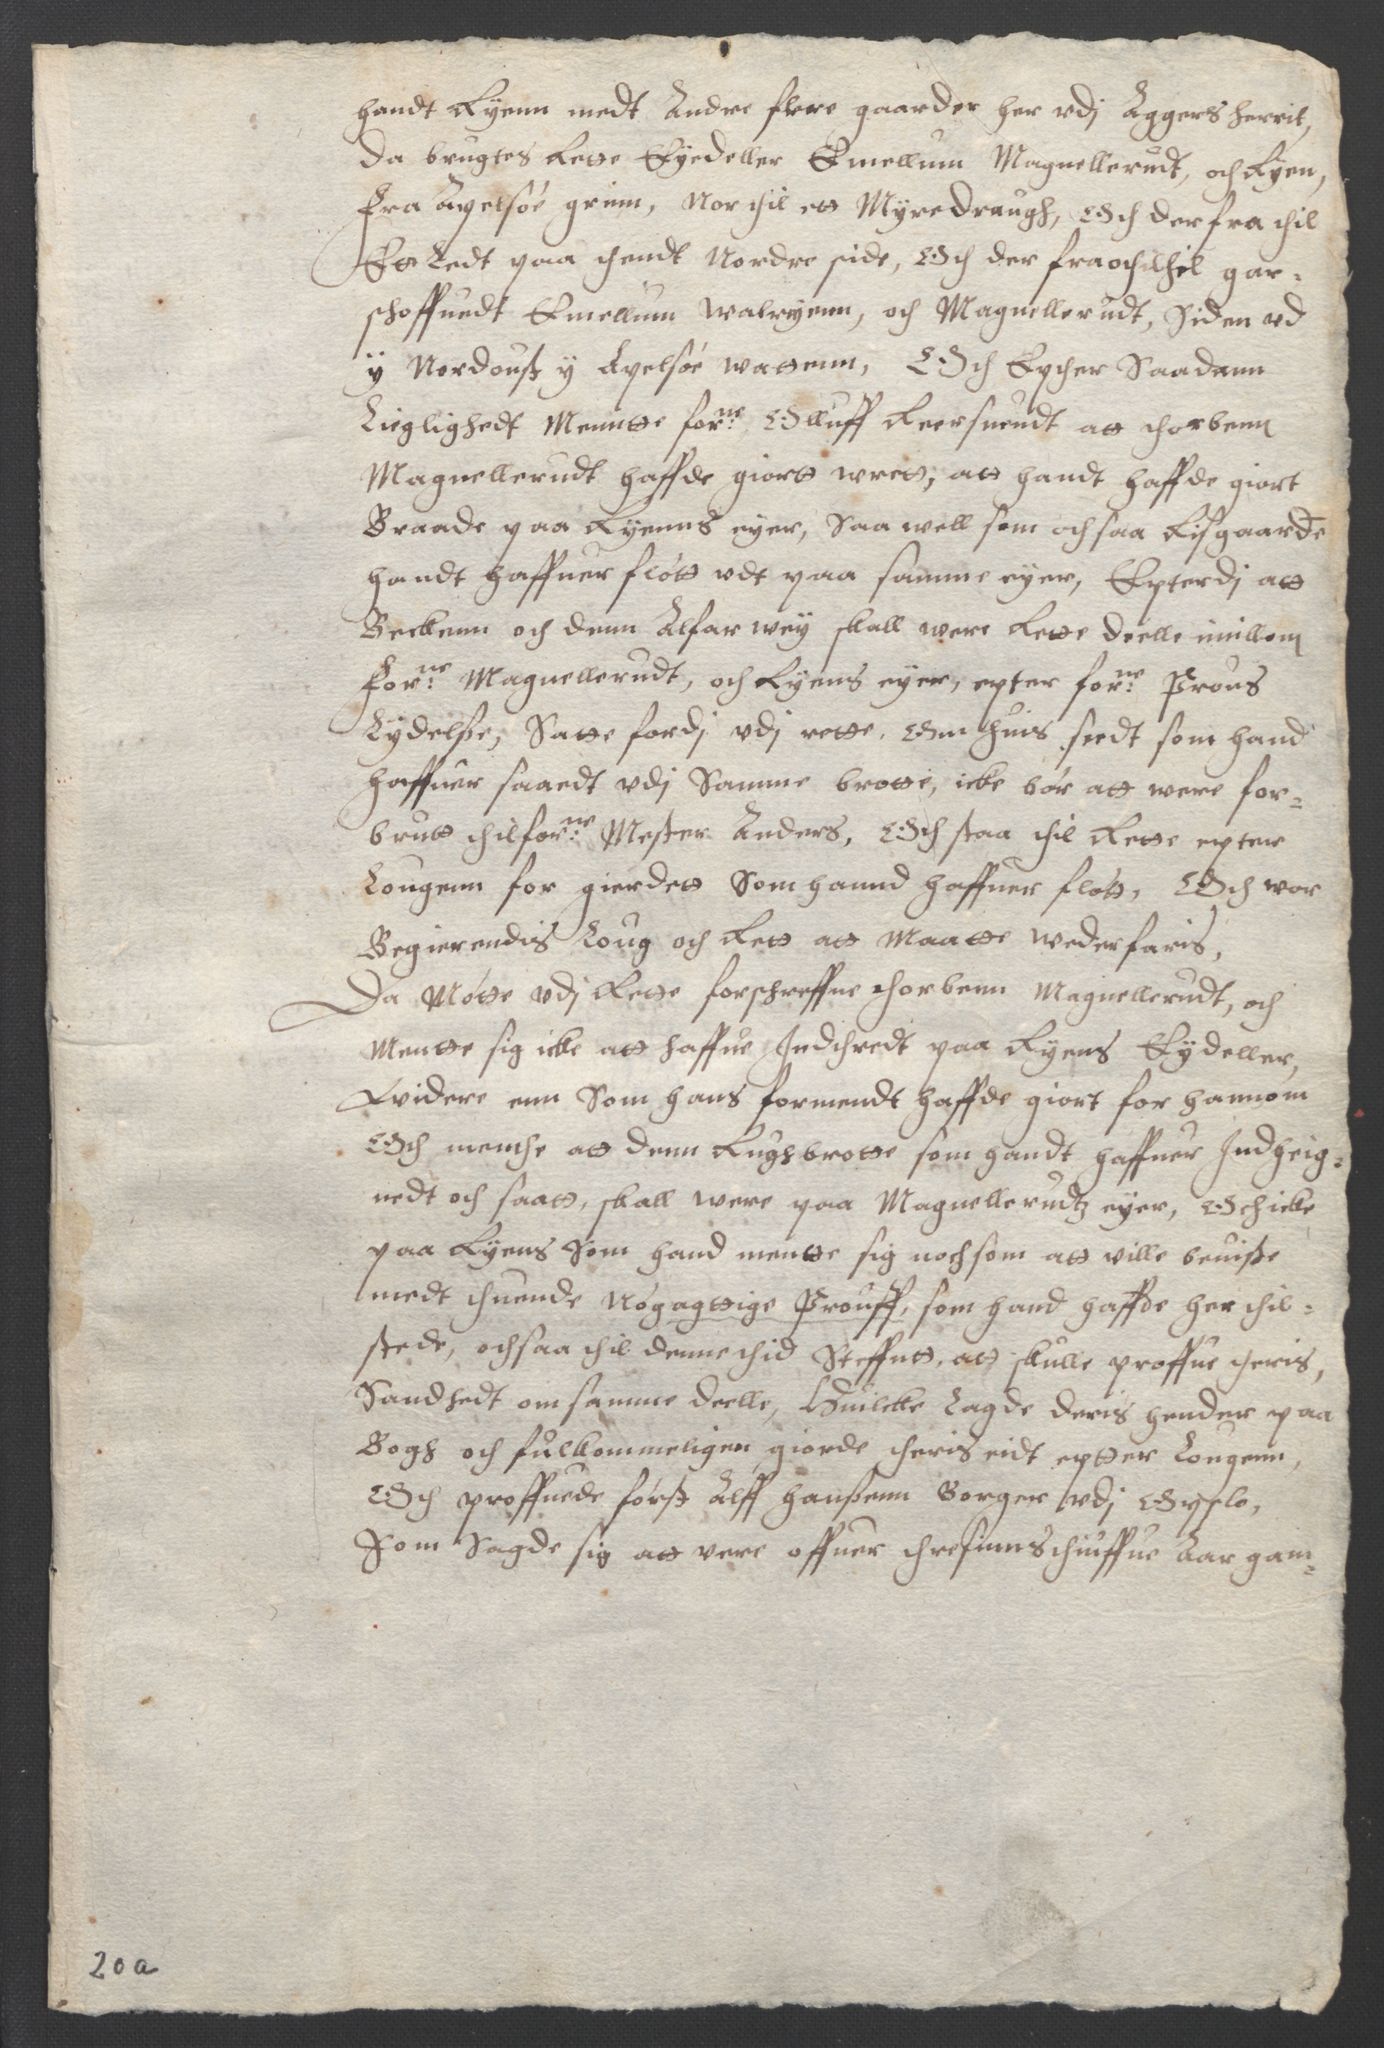 handt Ryenn medt Andre flere gaarder her vdj Aggers herrit,
da brugtes Rette Eyedeller Emellum Magnellerudt, och Ryen,
Fra Apelsøe grinn, Nor thil ett Myredraugh, Och derfra thil
Ett Ledt paa thendt Nordre side, Och der fra och thil gar-
shoffuedt Emellum walryenn, och Magnellerudt, Siden vd
y Nordoust y Epelsøe wattenn, Och Epther Saadann
Lieglighedt Mentte forne: Olluff Reersuendt att thorbenn
Magnellerudt haffde giortt wrett, att handt haffde giort
Braade paa Ryenns eyer, Saa well som ochsaa Risgaarde
handt haffuer fløtt vdt paa samme eyer, Epterdj att
Beckenn och denn Alfar wey skall were Rette deelle imillom
Forne: Magnellerudt, och Ryens eyer, epter forne: Prous
Lydelsse, Satte fordj vdj rette, Om huis sedt som hand
haffuer saaedt vdj Samme brotte, icke bør att were for-
brutt thil forne: Mester Anders, Och staa thil Rette epter
Lougenn for gierdett Som hannd haffuer fløtt, Och war
Begierendis Loug och Rett att Maatte wederfaris,
Da Møtte vdj Rette forschreffne thorbenn Magnellerudt, och
Mentte sig icke att haffue Indthredt paa Ryens Eydeller,
Widere enn Som hans formendt haffde giort for hannom
Och menthe att denn Rughbrotte som handt haffuer Indheig-
nedt och saatt, skall were paa Magnellerudtz eyer, Och icke
paa Ryens Som hand mentte sig nochsom att ville beuisse
medt thuende Nøgagttige Prouff, som hand haffde her thil-
stede, och saa thil denne thid Steffntt, att skulle proffue theris,
Sandhedt om samme deelle, Huilcke Lagde deris hender paa
Bogh och fulkommeligen giorde theris eidt eptter Lougenn,
Och proffuede først Alff hanssenn Borger vdj Opslo,
Som Sagde sig att vere offuer thresinnsthiuffue Aar gam-
20a